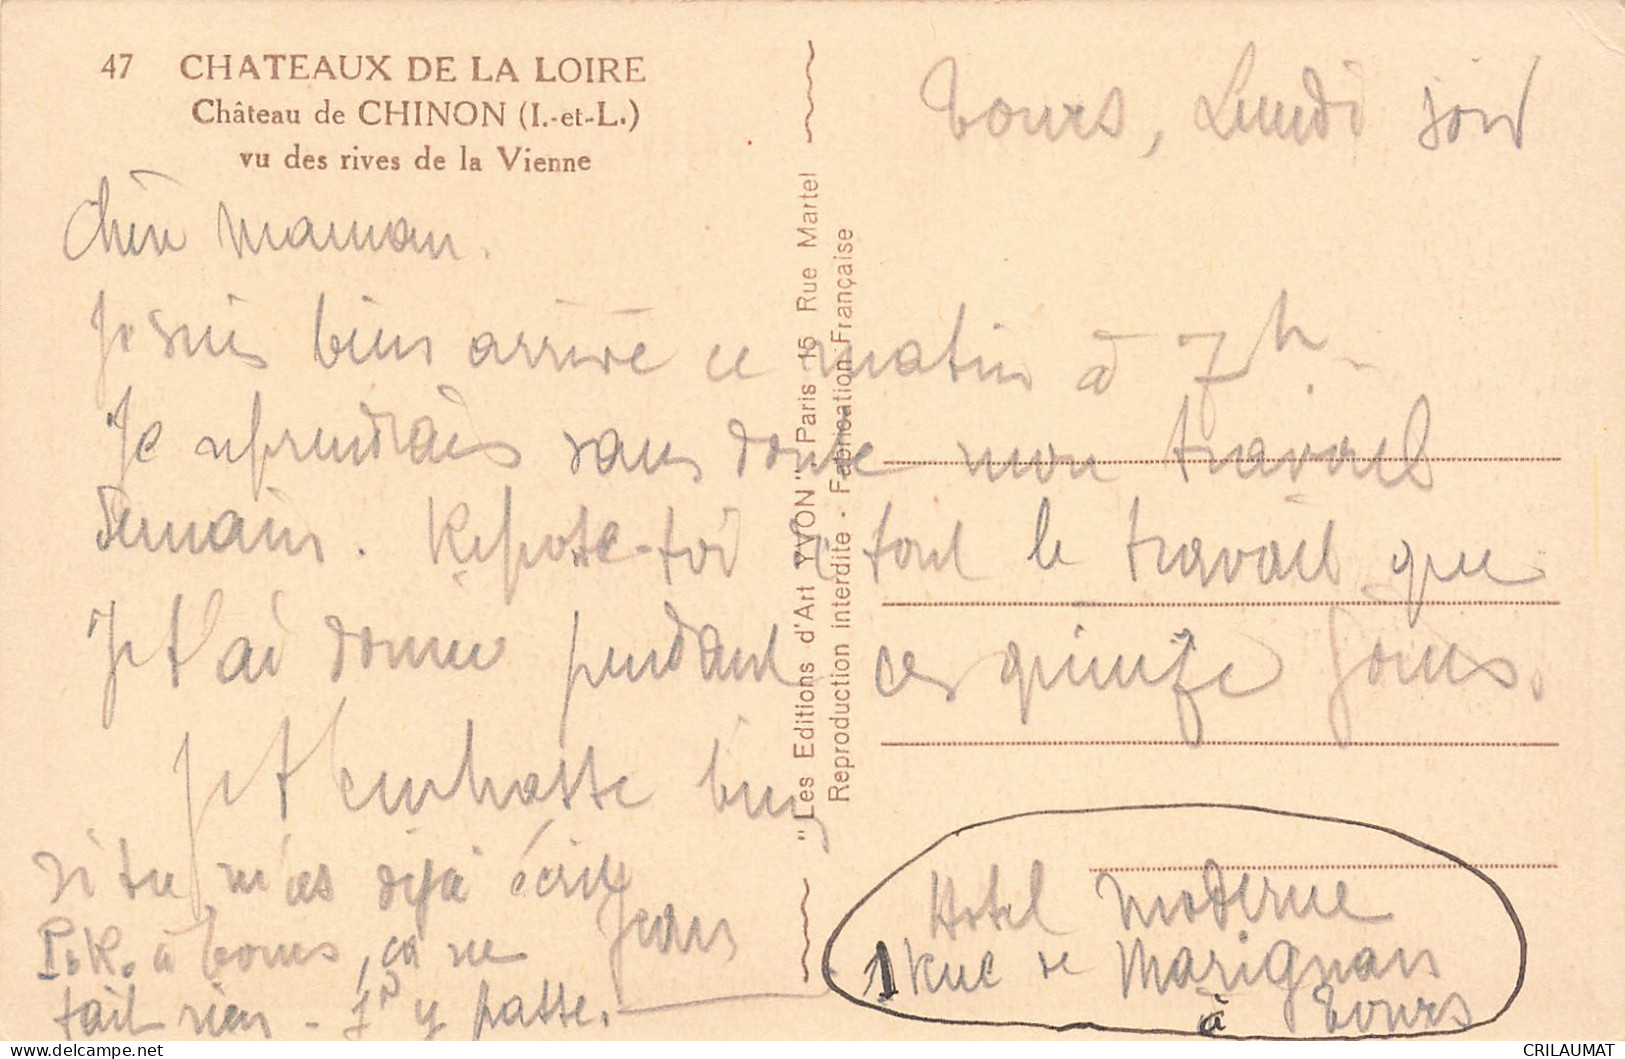 47 CHATEAUX DE LA LOIRE
Château de CHINON (I.-et-L.)
vu des rives de la Vienne
Tours, Lundi soir
Chère Maman.
Je suis bien arrivé ce matin à 7h.
Je reprendrais sans doute mon travail
demain. Repose-toi de tout le travail que
je t'ai donné pendant ces quinze jours.
Je t'embrasse bien
Jean
si tu m'as déjà écrit
P.R. à Tours, ça ne
fait rien - j'y passe.
Hotel Moderne
1 Rue de Marignan
à Tours
"Les Editions d'Art YVON" Paris 15 Rue Martel
Reproduction interdite - Fabrication Française
CRILAUMAT